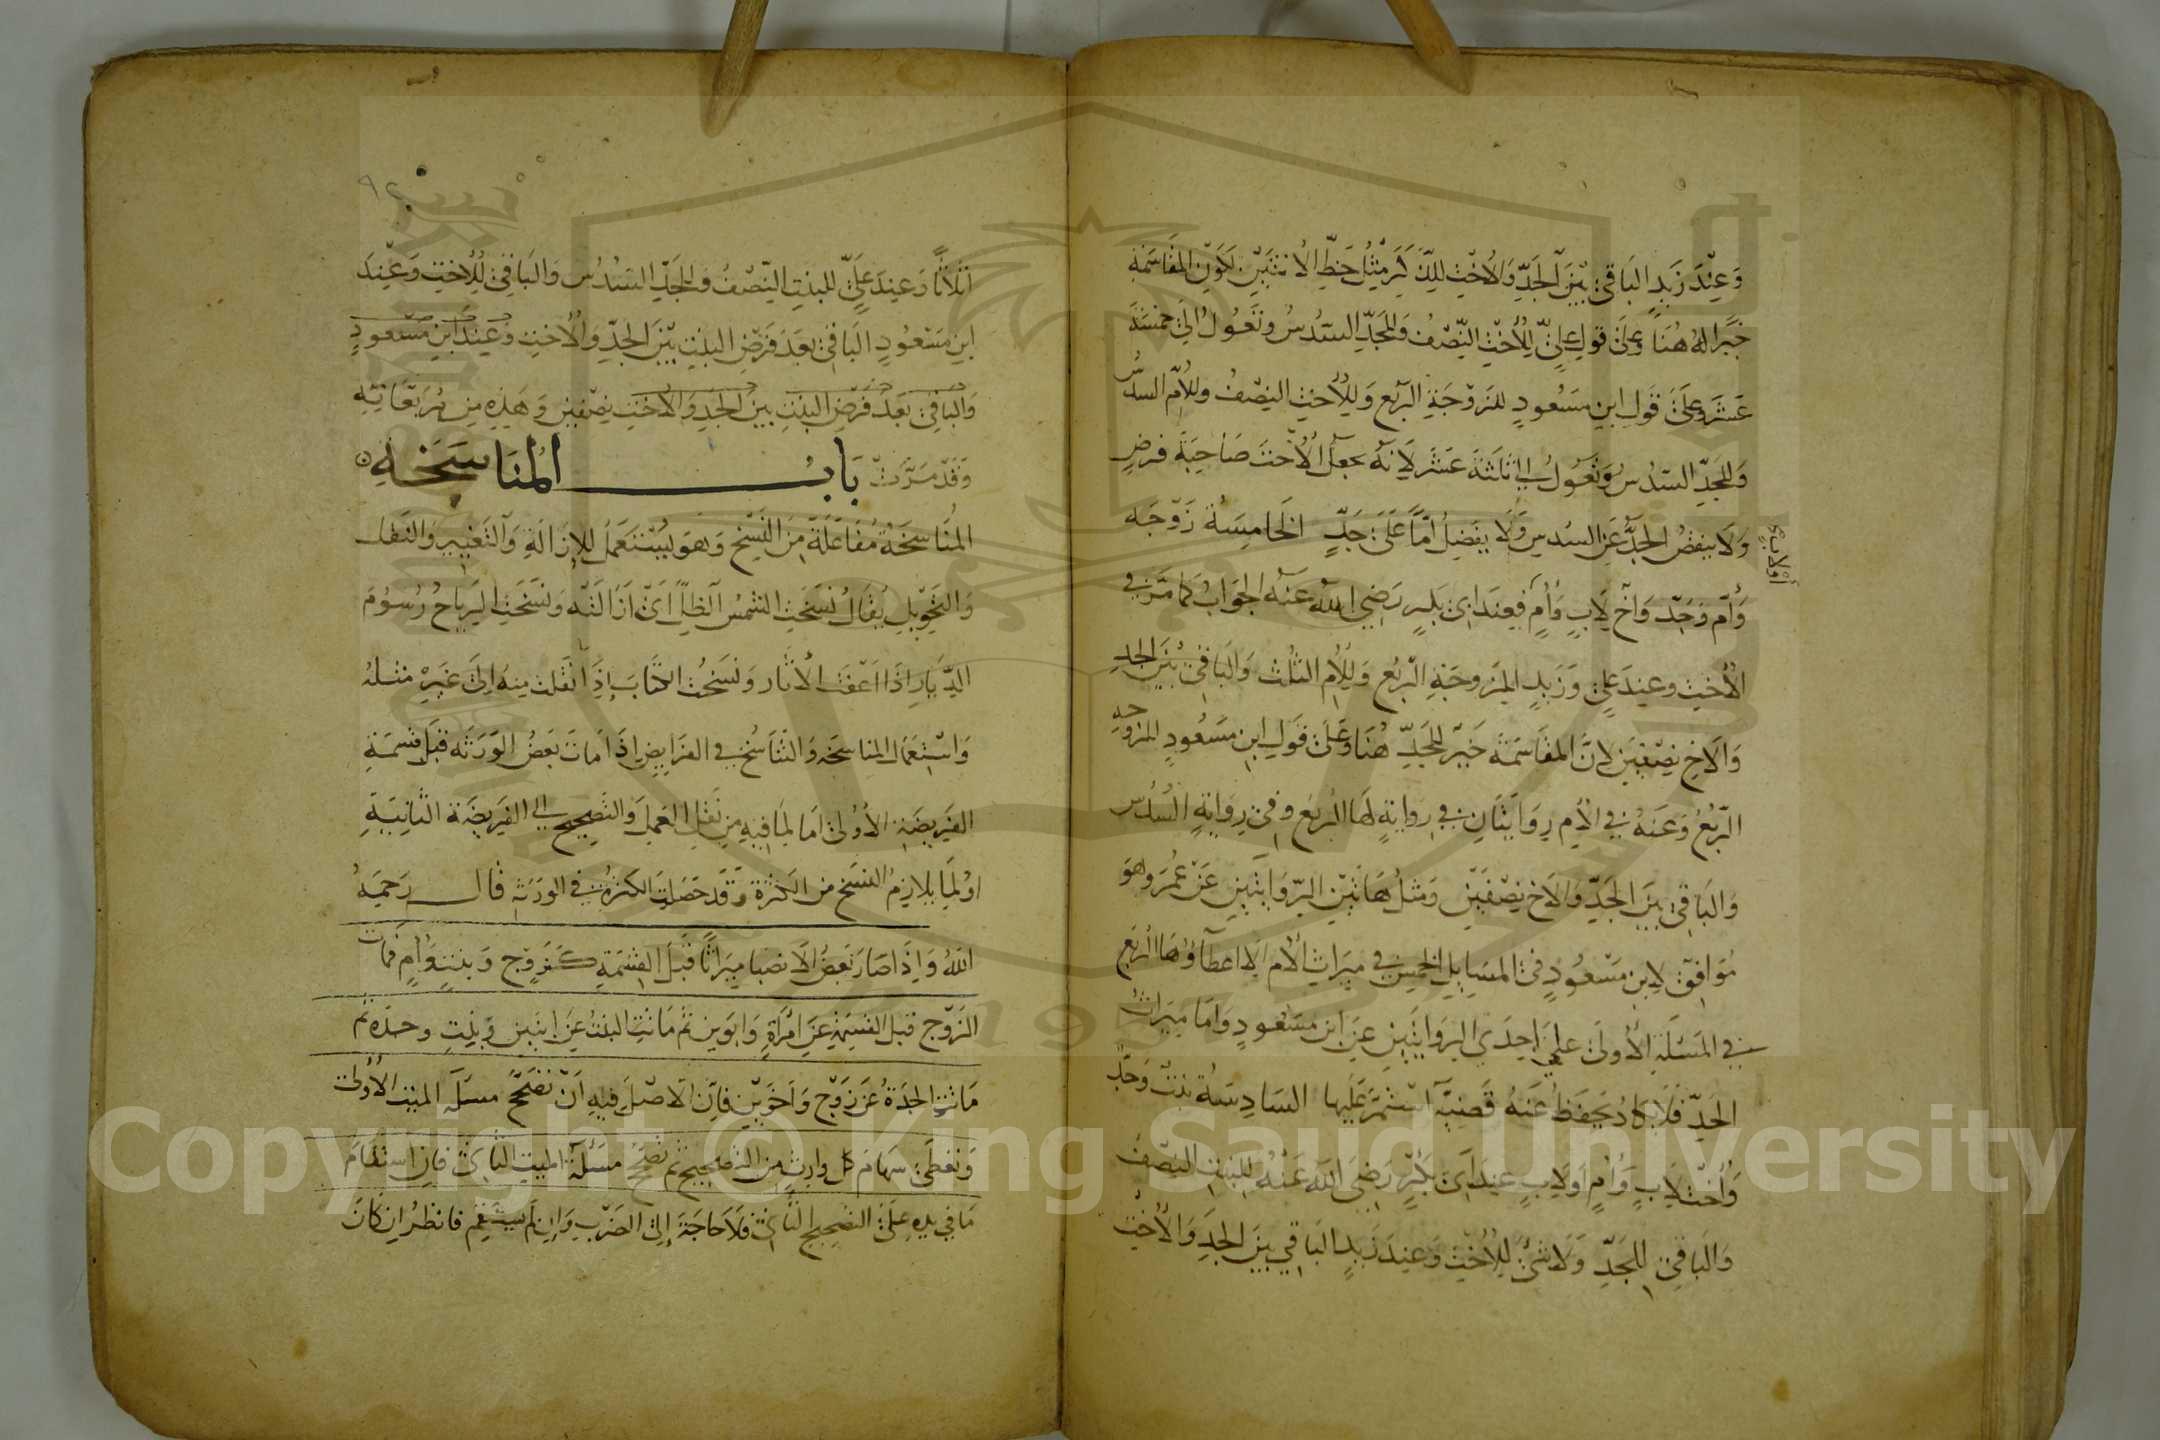 وَعِنْدَ زَيدٍ البَاقي بَيْنَ الجَدِّ وَالأُخْتِ لِلذَّكَرِ مِثْلُ حَظِّ الأُنْثَيَيْنِ لِكَوْنِ المقَاسَمَةِ
خَيرًا لهُ هُنَا وَعلَى قولِ عليٍّ لِلأُخْتِ النِّصْفُ وَلِلجَدِّ السّدُسُ وتَعُولُ الى خمسَةَ
عَشَرَ وعلَى قَولِ ابنِ مسَعُودٍ للزَوْجَةِ الربع وَلِلأُخْتِ النِصْفُ وللأمّ السدُسُ
وَللجَدِّ السّدُسُ وَتَعُولُ الى ثَلثَةَ عَشَر لأَنّهُ يجعلُ الأُخْتَ صَاحِبَةَ فرضٍ
وَلَا ينقصُ الجَدَّ عَنِ السُدسِ وَلَا يفَضِلُ امًّا عَلَى جَدٍّ الخَامِسَةُ زَوْجَة
وَأُم وَجَدّ وَأخ لِابٍ وَأمٍ فعِندَ ابى بَكرٍ رَضِي اللّه عَنهُ الجوَابُ كمَا مَرّ في
أولاب
الأُخْتِ وعِندَ عليٍّ وَزَيدٍ للزوجَةِ الرّبُع وَلِلأُمِ الثلُث وَالبَاقي بَيْنَ الجدِ
وَالاخِ نِصْفَيْنِ لانَّ المقَاسَمَة خَيرٌ للجَدِّ هُنَا وَعَلَى قَولِ ابنِ مسَعُودٍ للزوجةِ
الرّبُعُ وَعَنهُ في الأُم رِوَايَتَانِ في روايةٍ لهَا الربع وفى رِوَايةٍ السُدُس
وَالبَاقي بَينَ الجَدِّ وَالاخِ نِصْفَيْن وَمثلُ هَاتَيْنِ الرّوَايتَينِ عَنْ عُمَر وَهوَ
مُوَافِقٌ لابنِ مَسْعُودٍ فى المسَايلِ الخمسِ في ميرَاثِ الأُم الا اعطَاؤُهَا الربَع
في المسَئلَةِ الأُولى على احدَى الروَايتَينِ عَنِ ابنِ مسَعُودٍ وَامَا ميَراثُ
الجَدِّ فَلَا يكَادُ يَحفَظُ عَنهُ قَضِيّة اسْتمَرَّ عَلَيهَا السَادِسَةُ بنتٌ وَجَدٌّ
وَأُخْت لِأبٍ وَأُمٍ اوَلابٍ عِندَ ابى بَكرٍ رَضِيَ اللّه عَنْهُ لِلبنتِ النِصْفُ
وَالبَاقى للجَدِّ وَلَاشَئَ لِلأُخْتِ وَعِندَ زَيدٍ البَاقي بَينَ الجَدِّ وَالأُخْتِ
٩٢
اثلَاثًا وَعِندَ عَلىٍّ للبنتِ النِّصْفُ وَلِلجَدِّ السّدُسُ وَالبَاقى لِلأُختِ وَعِندَ
ابنِ مَسْعُودٍ البَاقى بَعَدَ فَرَضِ البنتِ بَيْنَ الجَدِّ وَالأُختِ وَعِندَ ابنِ مَسْعُودٍ
وَالبَاقى بَعَدَ فَرَضِ البنتِ بينَ الجَدِّ وَالأُختِ نِصْفَينِ وَهَذِهِ مِن مُرَبَّعَاتِهِ
وَقَدْ مَرّتْ بَابُ المُنَاسَخَةِ
المُنَاسَخَةُ مُفَاعَلَةٌ مِنَ النَّسْخِ وَهوَ يُسْتَعمَلُ للإزَالَةِ وَالتَّغيِيرِ وَالنَّقلِ
وَالتَحِوْيلِ يُقَالُ نَسَخَتِ الشّمْسُ الظِلَّ اىْ ازَالتْهُ وَنَسَخَتِ الرِيَاحُ رُسُومَ
الدِّيَارِ اذَا اعْفَت الأثَار وَنسَخْتُ الكتَابَ إذَا نَقَلتَ مِنهُ الى غَيرِهِ مثلهُ
وَاسْتِعمَال المنَاسَخَة وَالتَّنَاسُخ في الفَرَايضِ اذَا مَاتَ بعَضُ الوَرَثَةِ قبَل قسمَةِ
الفَريضَةِ الأولى امَا لِمَا فيهِ مِن نَقلِ العَمَلِ وَالتَصِحيحِ الى الفَريضَة الثَانِيَةِ
اوْلِمَا يلازِمُ النَسخَ من الكَثرَةِ وَقَد حَصَلتِ الكثرةُ في الورَثَةِ قال رَحمَهُ
اللّهُ وَاذَا صَارَ بعَضُ الانصبَا ميرَاثًا قَبلَ القِسْمَةِ كَزَوْج وَبنتٍ وَأُمٍ فمَات
الزَوّج قبل القسمَةِ عَنِ امْرَأةٍ وَابوَينِ ثم مَاتتِ البنتُ عَنِ ابنَينِ وَبِنتٍ وجدّة ثم
مَاتتِ الجَدَةُ عَن زَوْجٍ وَأَخَوَيْنِ فَانَّ الاصْلَ فيهِ أنْ تُصَحّحَ مسَئلَة الميّتِ الأُولى
وَتعْطى سهَامَ كُل وارِثٍ مِنَ التصحِيحِ ثم تصَحّحَ مسَئلَةَ الميّتِ الثانى فان استقَامَ
مَا في يدهِ علَى التصِحيحِ الثّانِى فَلَا حَاجَةَ إلى الضَرْبِ وَإن لَم يسْتقِم فانظرُ ان كَانَ
Copyright © King Saud University
1957